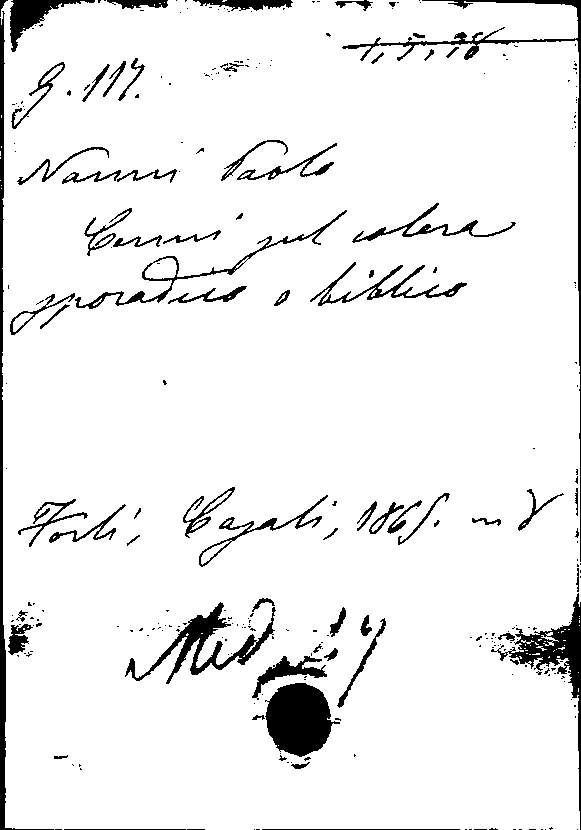 1, 5, 28
G. 117.
Nanni Paolo
Cenni sul colera
sporadico o biblico
Forlì, Casali, 1865. in 8
Med